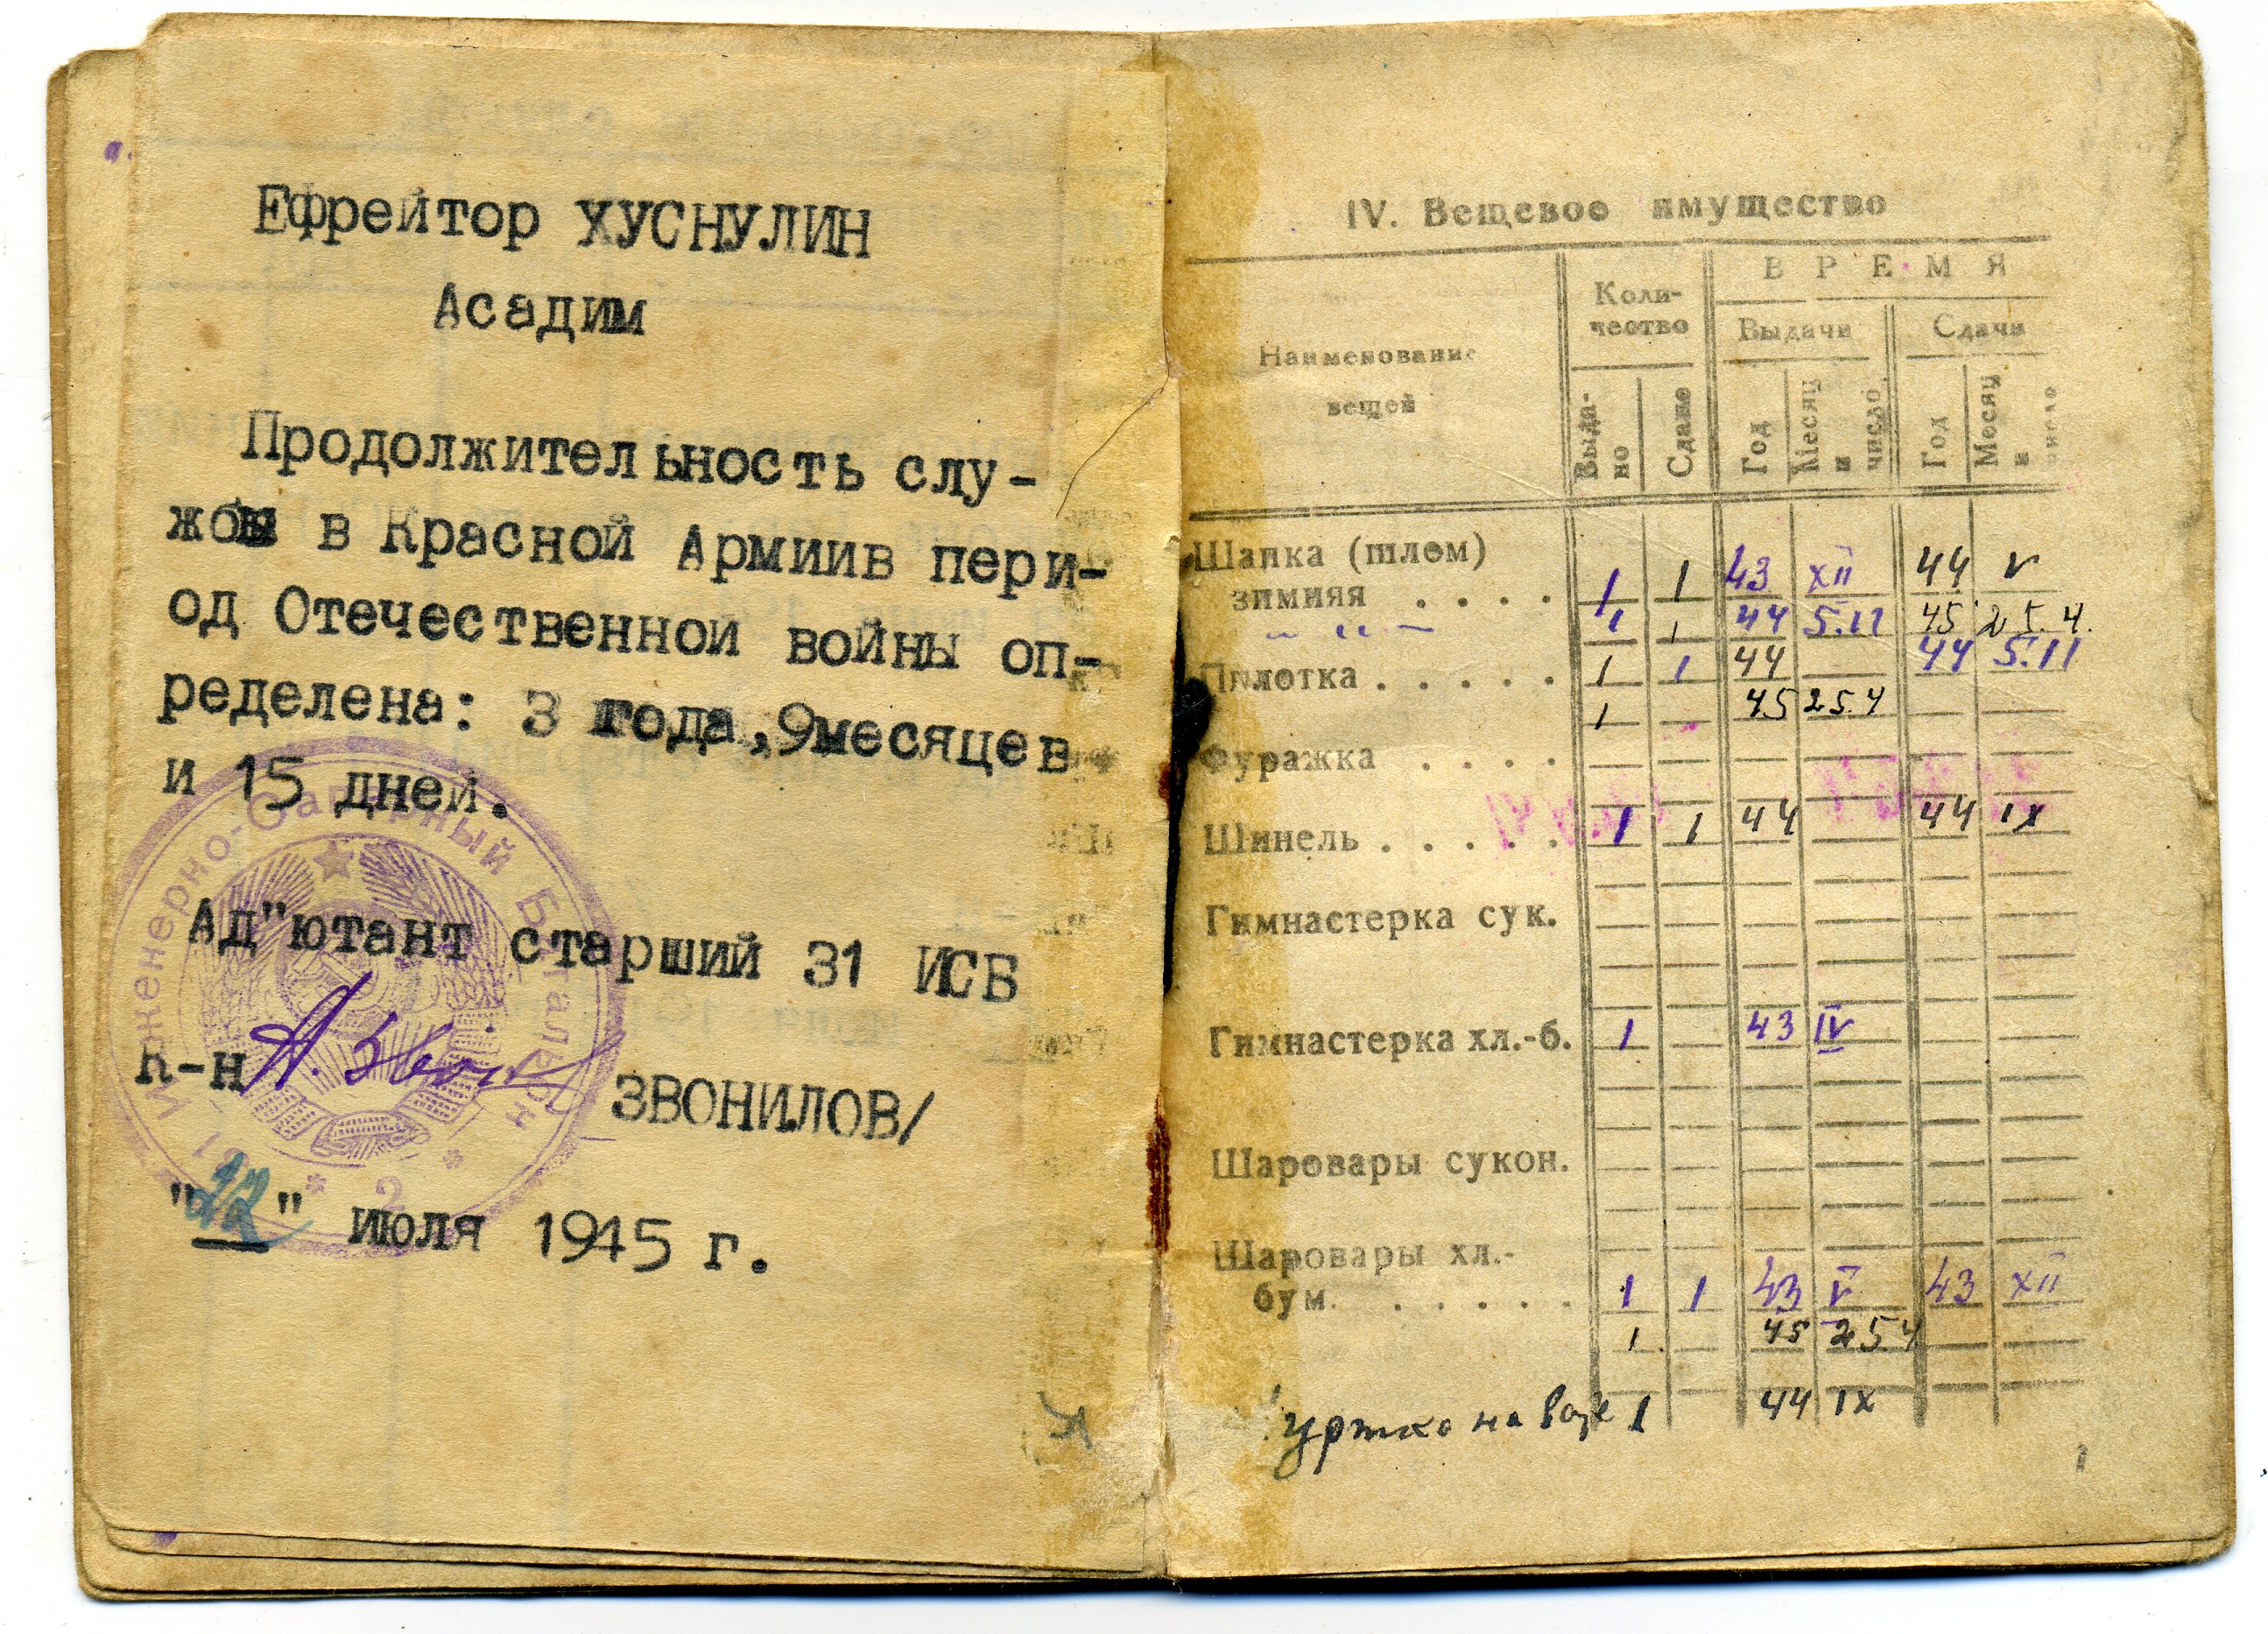 Ефрейтор ХУСНУЛИН
Асадим
Продолжительность слу-
жбы в Красной Армиив пери-
од Отечественной войны оп-
ределена: 3 года,9месяцев
и 15 дней.
Инженерно-Саперный Батальон
Ад"ютант старший 31 ИСБ
К-н А. Звон ЗВОНИЛОВ/
"22" июля 1945 г.
IV. Вещевое имущество
Наименование вещей
Коли-
чество
ВРЕМЯ
Выдачи Сдачи
Выда-
но
Сдано
Год
Месяц и число
Год
Месяц и число
Шапка (шлом)
зимняя . . . . 1 1 43 XII 44 V
" " 1 1 44 5.11 45 25.4.
Пилотка . . . . . 1 1 44 44 5.11
1 45 25.4
Фуражка . . . .
Шинель . . . . . 1 1 44 44 IX
Гимнастерка сук.
Гимнастерка хл.-б. 1 43 IV
Шаровары сукон.
Шаровары хл.-
бум. . . . . . 1 1 43 V 43 XII
1 45 25.4
на 1 44 IX